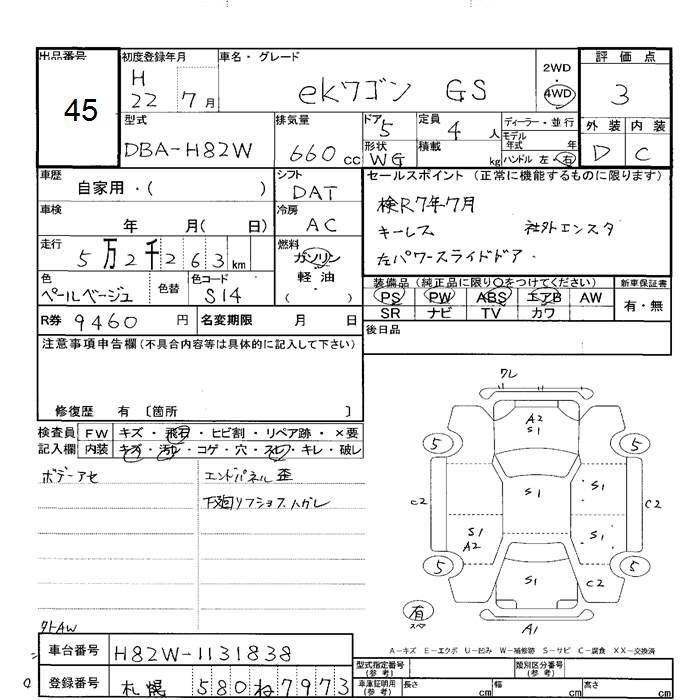 出品番号
45
初度登録年月
H
22 7月
車名・グレード
ekワゴン GS
2WD
・
4WD
評価点
3
外装 内装
D C
型式
DBA-H82W
排気量
660cc
ドア
5
定員
4人
形状
WG
積載
kg
ディーラー・並行
モデル年式 年
ハンドル 左・右
車歴
自家用・( )
シフト
DAT
セールスポイント (正常に機能するものに限ります)
検R7年7月
キーレス 社外エンスタ
左パワースライドドア
車検
年 月( 日)
冷房
AC
走行
5万2千263km
燃料
ガソリン
・
軽油
( )
色
ペールベージュ
色替
色コード
S14
装備品(純正品に限り○をつけてください)
PS PW ABS エアB AW
SR ナビ TV カワ
新車保証書
有・無
R券 9460円
名変期限 月 日
後日品
注意事項申告欄(不具合内容等は具体的に記入して下さい)
修復歴 有 〔箇所 〕
検査員記入欄
FW キズ・飛石・ヒビ割・リペア跡・×要
内装 キズ・汚レ・コゲ・穴・スレ・キレ・破レ
ボデーアセ
エンドパネル歪
下廻リフショブ
ワレ
A2
S1
5
5
C2
S1
S1
C2
S1
A2
S1
5
5
S1
C2
有
スペア
A1
A-キズ E-エクボ U-凹み W-補修跡 S-サビ C-腐食 XX-交換済
外AW
車台番号 H82W-1131838
登録番号 札幌 580 ね 7973
型式指定番号(参考)
類別区分番号(参考)
車庫証明用(参考) 長さ cm 幅 cm 高さ cm